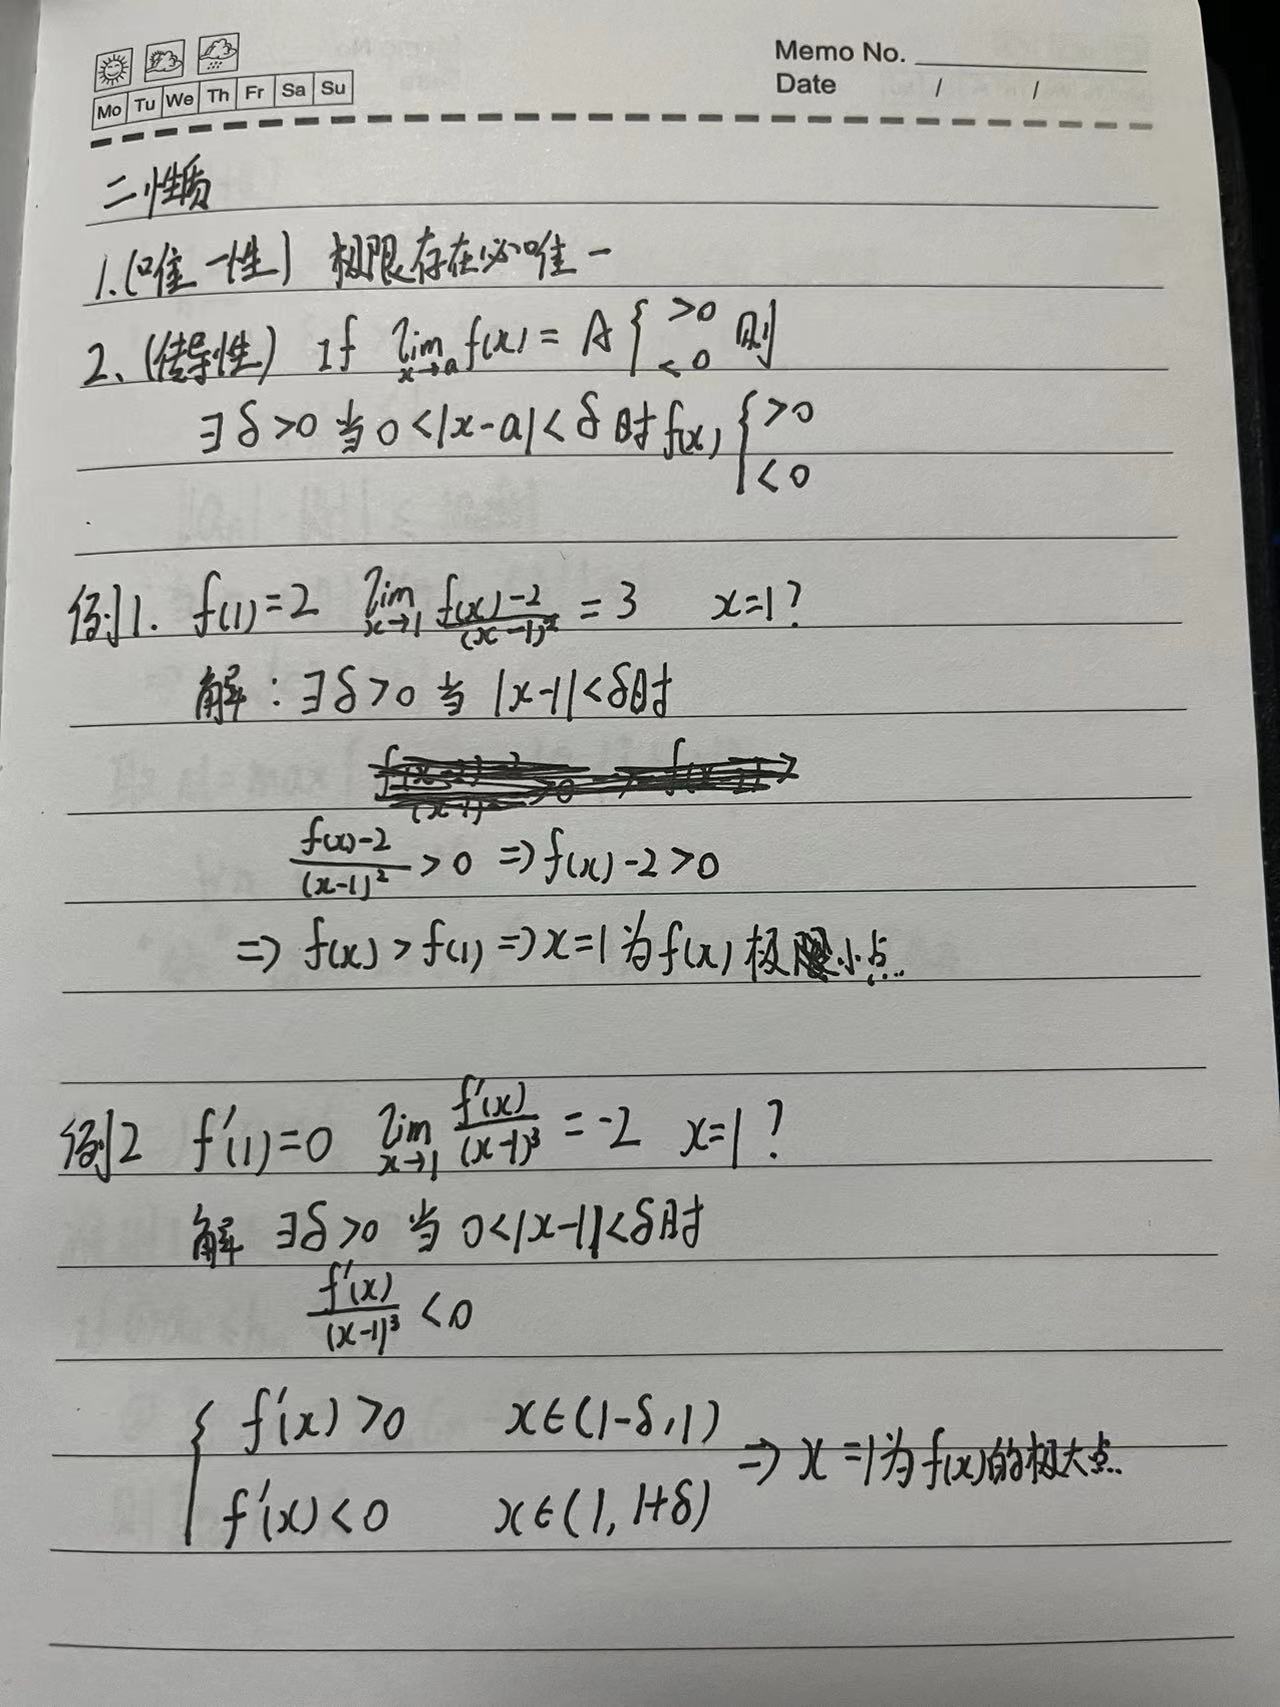 Memo No.
Mo Tu We Th Fr Sa Su
Date / /
二性质
1.(唯一性) 极限存在必唯一
2、(传导性) If lim x→a f(x) = A { >0 <0 则
∃δ>0 当 0<|x-a|<δ时 f(x) { >0 <0
例1. f(1)=2 lim x→1 (f(x)-2)/(x-1)² = 3 x=1?
解: ∃δ>0 当 |x-1|<δ时
(f(x)-2)/(x-1)² >0 ⇒ f(x)-2>0
⇒ f(x)>f(1) ⇒ x=1为f(x)极小点.
例2 f'(1)=0 lim x→1 f'(x)/(x-1)³ = -2 x=1?
解 ∃δ>0 当 0<|x-1|<δ时
f'(x)/(x-1)³ <0
{ f'(x)>0 x∈(1-δ,1)
f'(x)<0 x∈(1,1+δ) ⇒ x=1为f(x)的极大点.